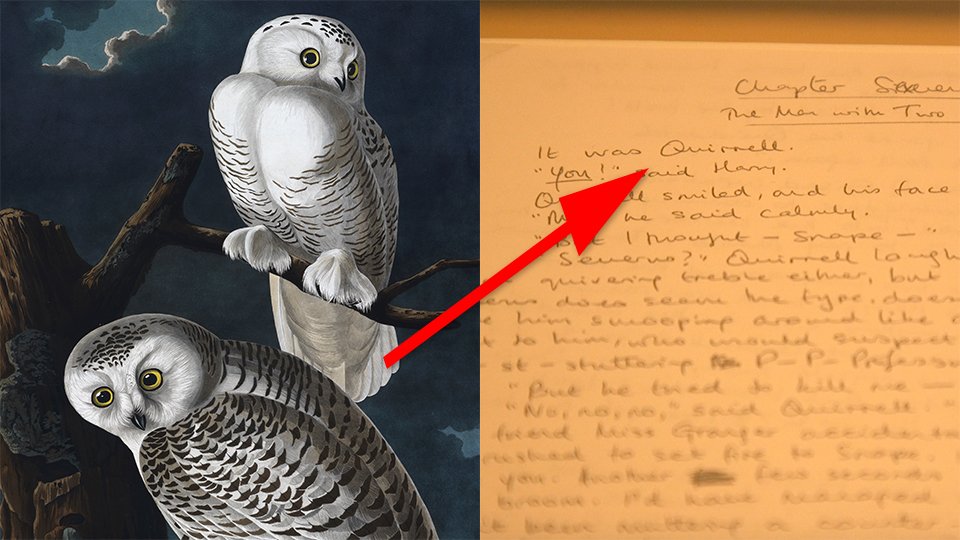 Chapter
The Man with Two
It was Quirrell.
"You!" said Harry.
smiled, and his face
he said calmly.
"But I thought – Snape – "
"Severus?" Quirrell laugh
quivering treble either, but
does seem the type, does
him swooping around like
to him, who would suspect
st-stuttering P-P Profess
"But he tried to kill me –
"No, no, no," said Quirrell.
friend Miss Granger accident
rushed to set fire to Snape.
you. Another few seconds
broom. I'd have
been muttering a counter